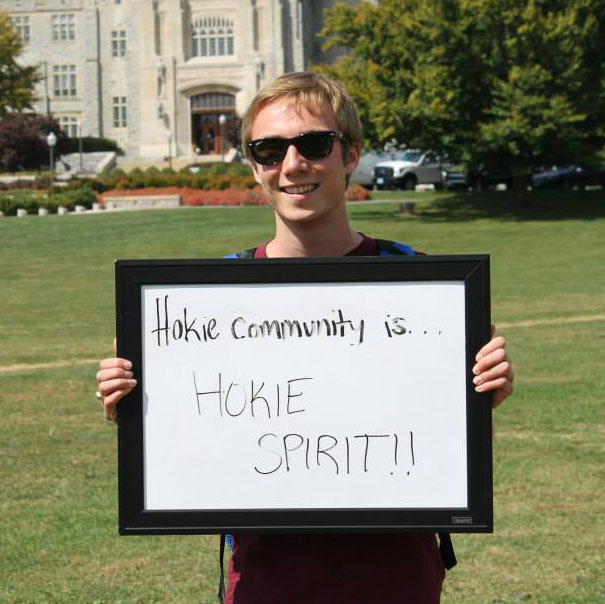 Hokie Community is...
HOKIE
SPIRIT!!